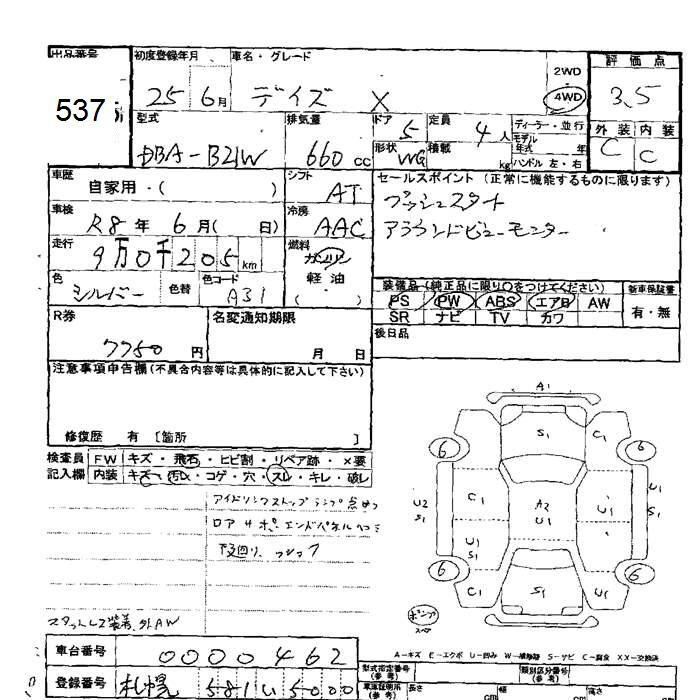 出品番号 初度登録年月 車名・グレード 2WD 評価点
537 25年 6月 デイズ X 4WD 3.5
型式 排気量 ドア 5 定員 4人 ディーラー・並行 外装 内装
DBA-B21W 660cc 形状 WG 積載 kg モデル年式 年 ハンドル 左・右 C C
車歴 自家用・( ) シフト AT セールスポイント (正常に機能するものに限ります)
車検 R8年 6月( 日) 冷房 AAC プッシュスタート
走行 9万0千205km 燃料 ガソリン アラウンドビューモニター
色 シルバー 色替 色コード A31 軽油 ( ) 装備品 (純正品に限り○をつけてください) 新車保証書
PS PW ABS エアB AW 有・無
SR ナビ TV カワ
R券 7750円 名変通知期限 月 日 後日品
注意事項申告欄 (不具合内容等は具体的に記入して下さい)
修復歴 有 [箇所 ]
検査員 FW キズ・飛石・ヒビ割・リペア跡・×要
記入欄 内装 キズ・汚れ・コゲ・穴・スレ・キレ・破レ
アイドリングストップランプ点めつ
ロアサポ、エンドパネル
下廻り、
スタットレス装着、外AW
A1
S1 C1
6 6
U2 S1 C1 A2 U1 U1 U1 S1
U1 S1
6 6
C1 S1 U1
ポンプ
スペア
A-キズ E-エクボ U-凹み W-補修跡 S-サビ C-腐食 XX-交換済
車台番号 0000462 型式指定番号 (参考) 類別区分番号 (参考)
登録番号 札幌 581 い 5000 車庫証明所 (参考) 長さ cm 幅 cm 高さ cm